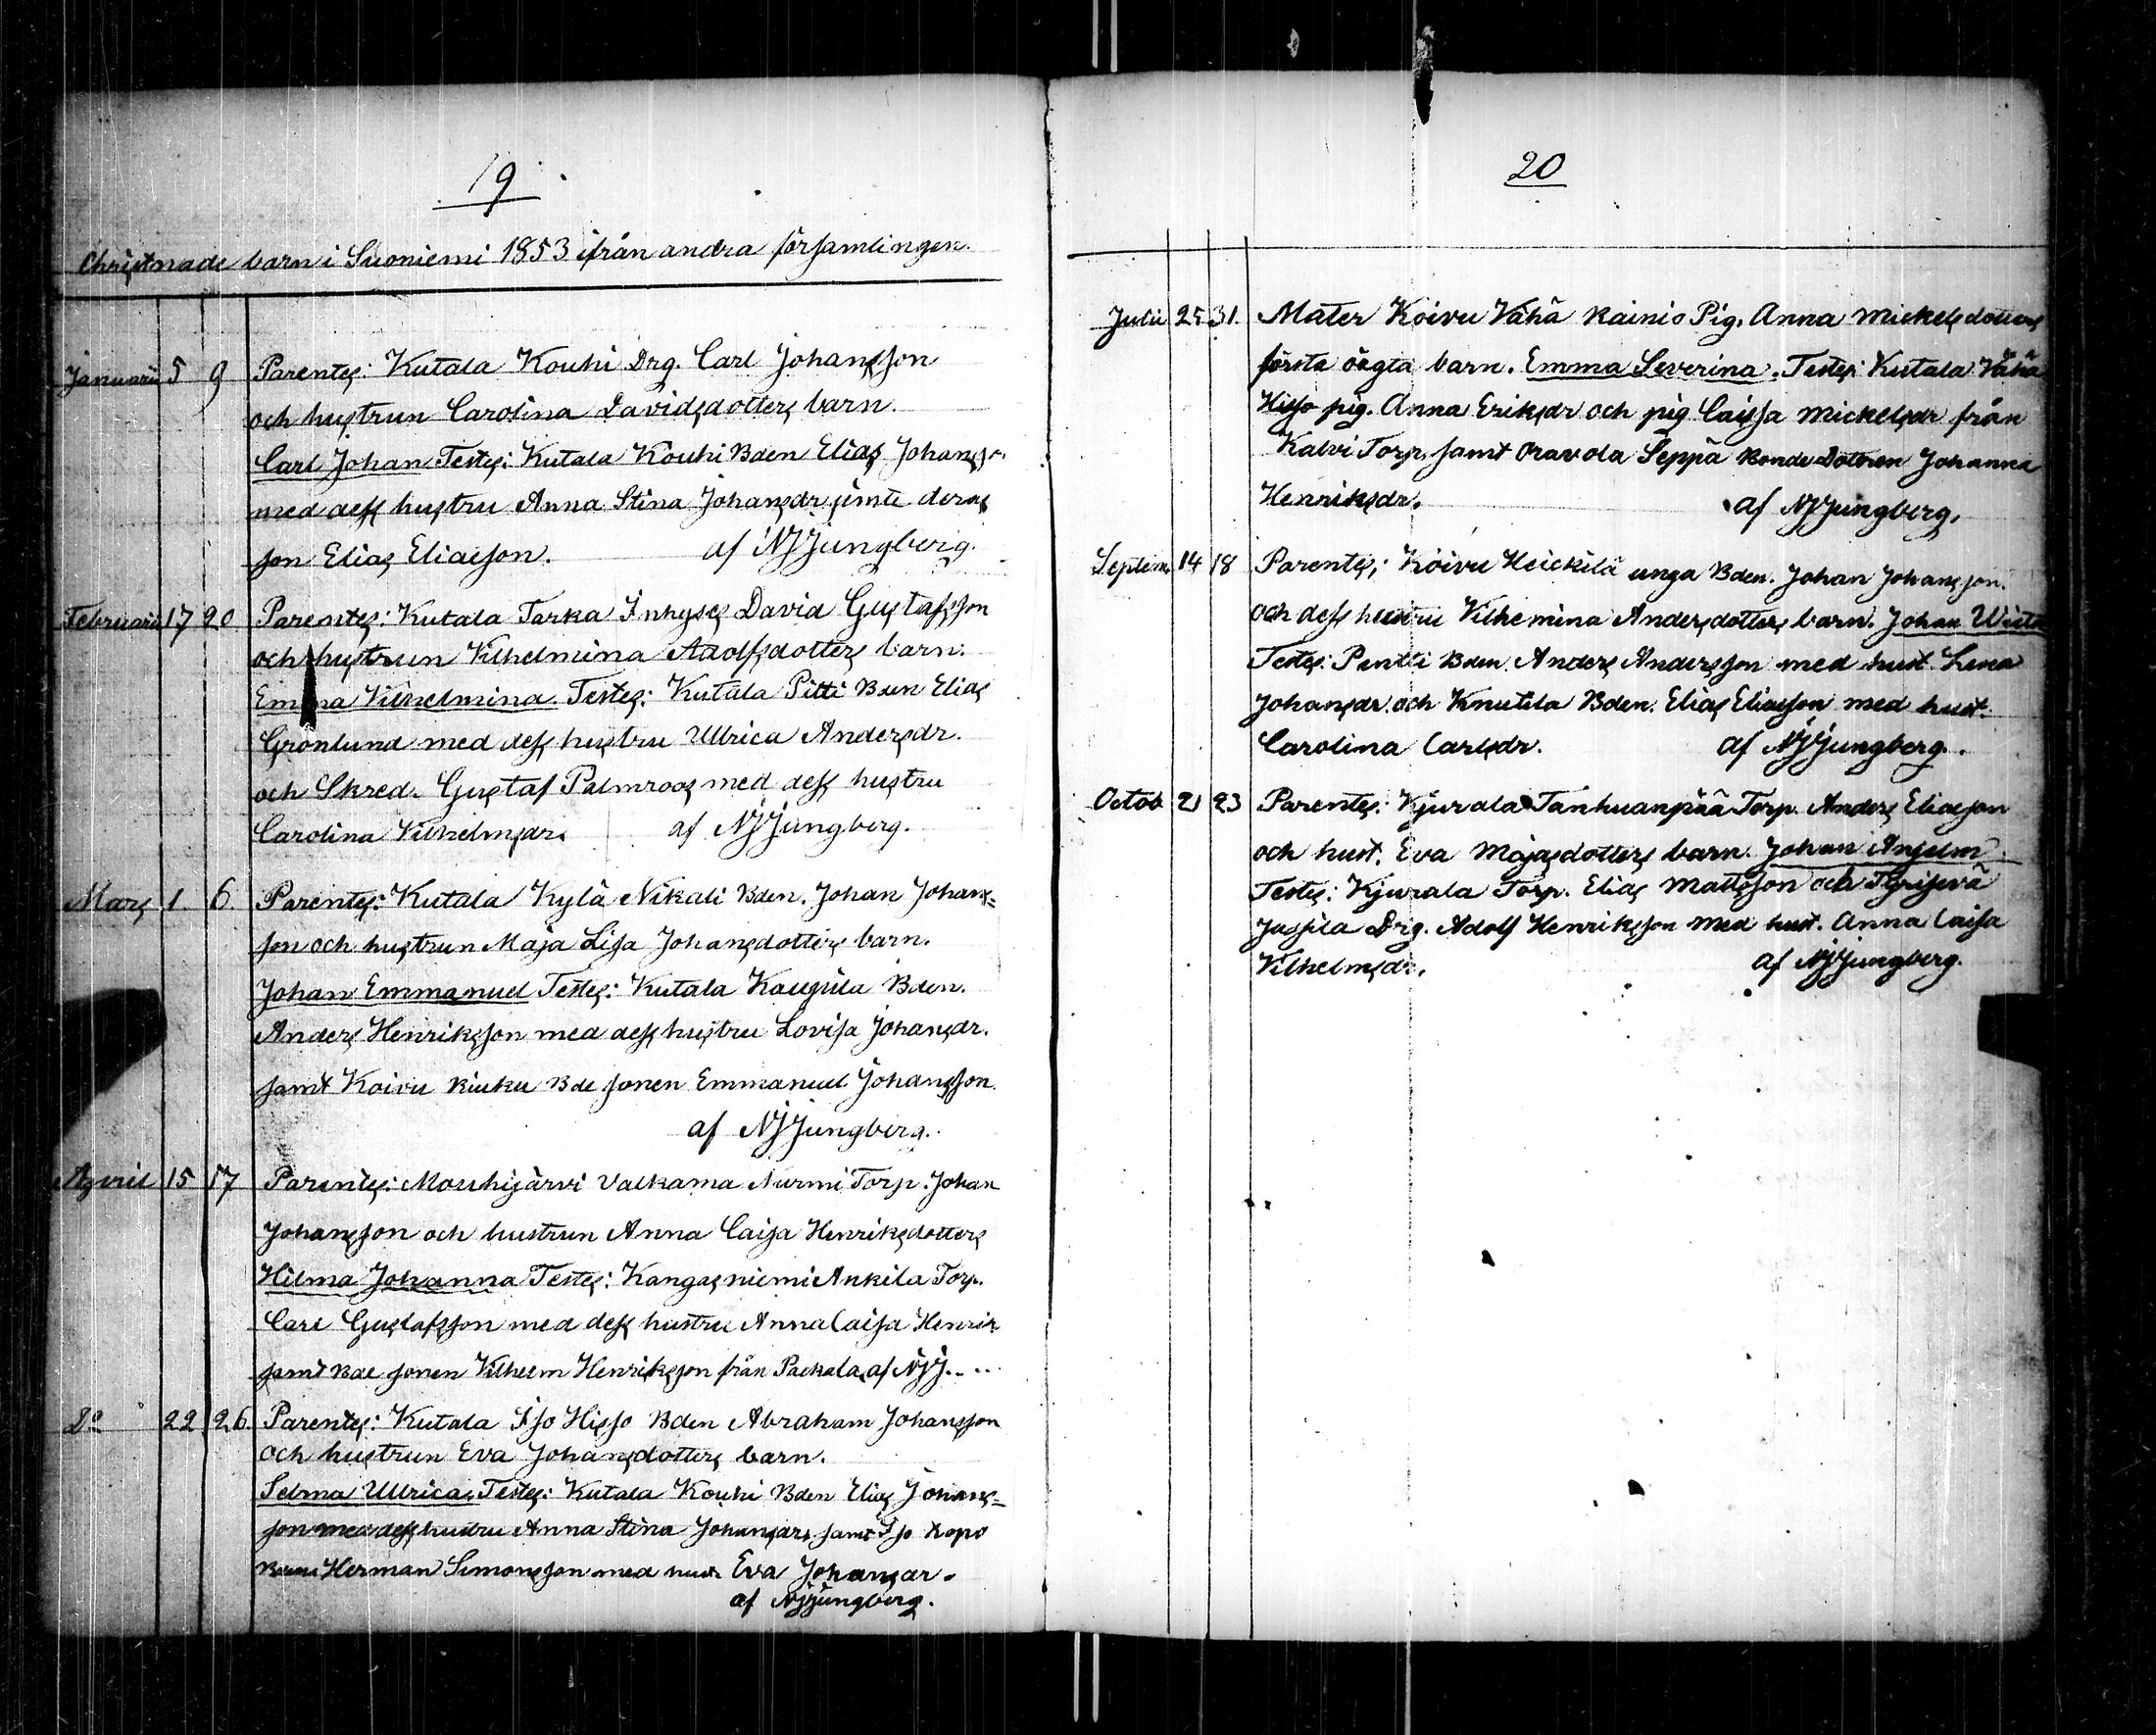 19
Christnade barn i Suoniemi 1853 ifrån andra församlingen.
Januarii 5 9 Parentes: Kutala Kouhi Drg. Carl Johansson
och hustrun Carolina Davidsdotters barn.
Carl Johan Testes: Kutala Kouhi Bden Elias Johanss
med dess hustru Anna Stina Johansdr jemte deras
son Elias Eliasson. af NJJungberg.
Februarii 17 20 Parentes: Kutala Tarka Inhyses David Gustafsson
och hustrun Vilhelmina Adolfsdotters barn.
Emma Vilhelmina. Testes: Kutala Pitti Bden Elias
Grönlund med dess hustru Ullrica Andersdr.
och Skred. Gustaf Palmroos med dess hustru
Carolina Vilhelmsdr. af NJJungberg.
Mars 1. 6. Parentes: Kutala Kylä Nikali Bden. Johan Johans=
son och hustrun Maja Lisa Johansdotters barn.
Johan Emmanuel Testes: Kutala Bden.
Anders Henriksson med dess hustru Lovisa Johansdr.
samt Koivu Kiuku Bde sonen Emmanuel Johansson.
af NJJungberg.
April 15 17 Parentes: Mouhijärvi Valkama Nurmi Torp. Johan
Johansson och hustrun Anna Caisa Henriksdotters
Hilma Johanna Testes: Kangasniemi Ankila Torp.
Carl Gustafsson med dess hustru Anna Caisa Henrik
samt Bde sonen Vilhelm Henriksson från Packala, af NJJ....
Do 22 26. Parentes: Kutala Iso Hisso Bden Abraham Johansson
och hustrun Eva Johansdotters barn.
Selma Ullrica. Testes: Kutala Kouhi Bden Elias Johans=
son med dess hustru Anna Stina Johansdr. samt Iso Kopo
Herman Simonsson med hust. Eva Johansdr.
af NJJungberg.
20
Julii 25 31. Mater Koivu Vähä Rainio Pig. Anna Mickelsdotters
första oägta barn. Emma Severina. Testes: Kutala Vähä
Hisso pig. Anna Eriksdr och pig Caissa Mickelsdr från
Kalvi Torp, samt Oravola Seppä Bonde Dottren Johanna
Henriksdr. af NJJungberg.
Septem. 14 18 Parentes; Koivu Heickilä unga Bden. Johan Johansson.
och dess hustru Vilhemina Andersdotters barn. Johan
Testes: Pentti Bden. Anders Andersson med hust. Lena
Johansdr. och Knutila Bden. Elias Eliasson med hust.
Carolina Carlsdr. af NJJungberg.
Octob 21 23 Parentes: Kjurala Tanhuanpää Torp. Anders Eliasson
och hust. Eva Majasdotters barn. Johan Anselm.
Testes: Kjurala Torp. Elias Mattsson och Tyrisevä
Jussila Drg. Adolf Henriksson med hust. Anna Caisa
Vilhelmsdr. af NJJungberg.